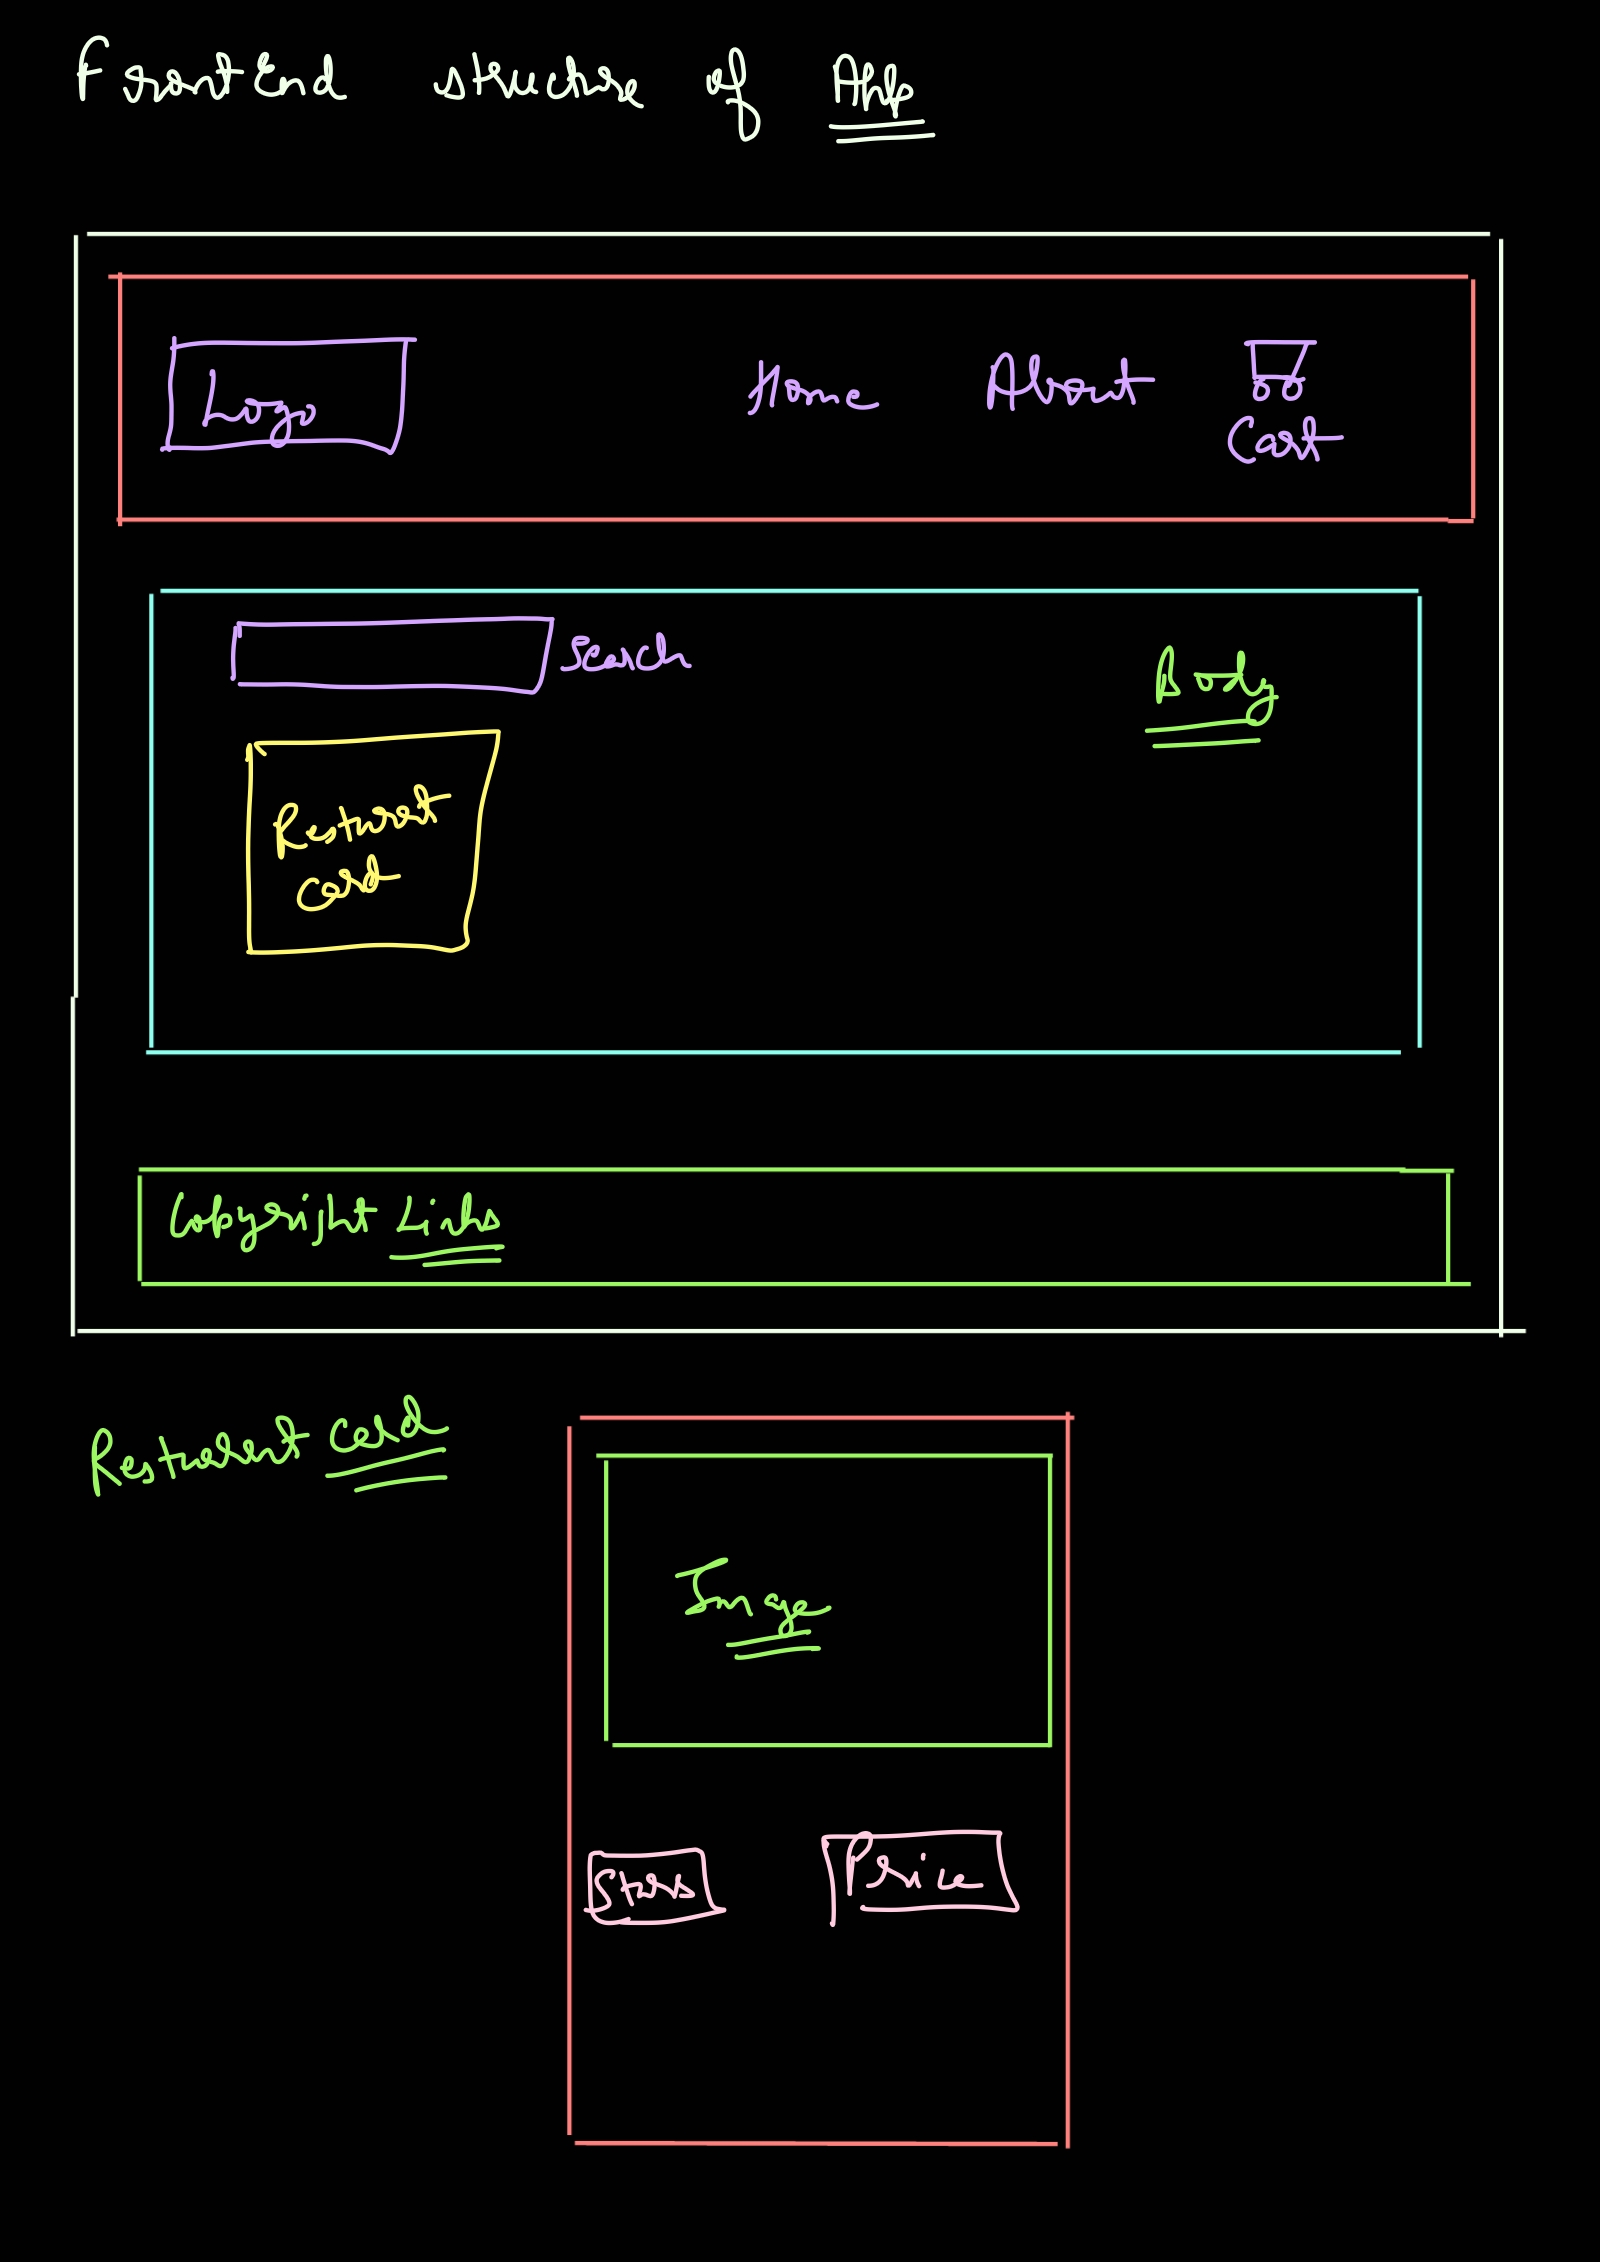 FrontEnd structure of App
Logo
Home About
Cart
Search
Body
Resturent
card
Copyright Links
Resturent card
Image
Stars
Price